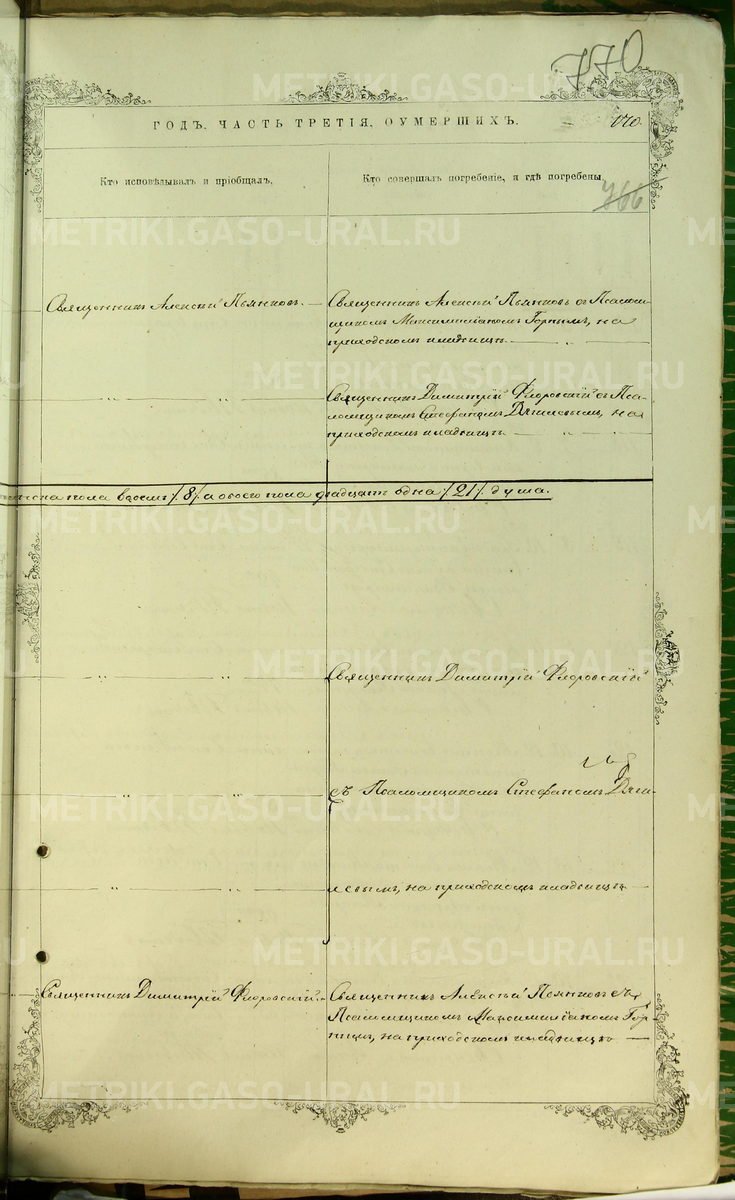 770
ГОДЪ, ЧАСТЬ ТРЕТІЯ, ОУМЕРШИХЪ.
170.
Кто исповѣдывалъ и пріобщалъ,
Кто совершалъ погребеніе, и гдѣ погребены,
766
Священникъ Алексій Пьянковъ.
Священникъ Алексій Пьянковъ съ Псалом-
щикомъ Максимиліаномъ Горнымъ, на
приходскомъ кладбищѣ.
Священникъ Димитрій Флоровскій съ Пса-
ломщикомъ Стефаномъ Дягилевымъ, на
приходскомъ кладбищѣ.
пола восемь /8/ а обоего пола двадцать одна /21/ душа.
Священникъ Димитрій Флоровскій
съ Псаломщикомъ Стефаномъ Дяги-
левымъ, на приходскомъ кладбищѣ
Священникъ Димитрій Флоровскій.
Священникъ Алексій Пьянковъ съ
Псаломщикомъ Максимиліаномъ Гор-
нымъ, на приходскомъ кладбищѣ
METRIKI.GASO-URAL.RU